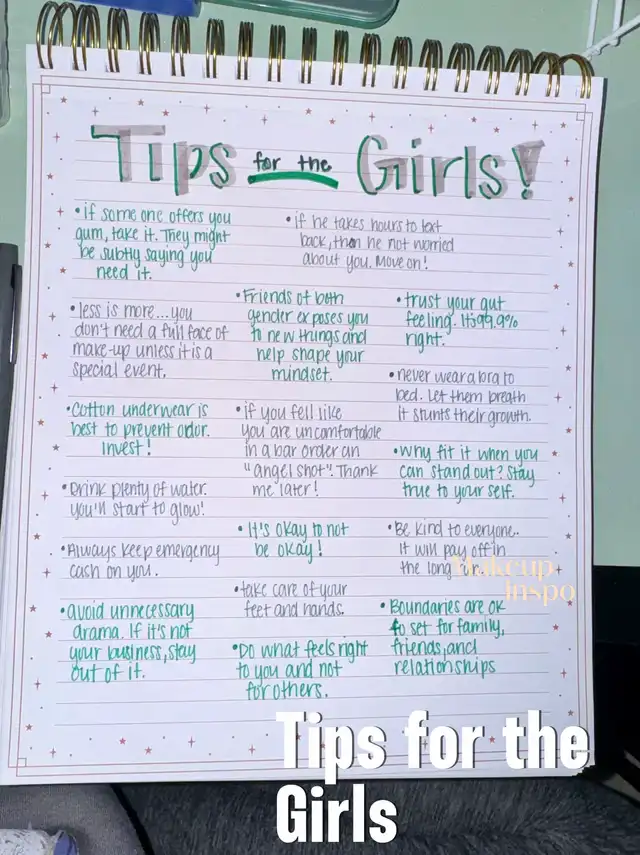 Tips for the Girls!
• if some one offers you
gum, take it. They might
be subtly saying you
need it.
• if he takes hours to text
back, then he not worried
about you. Move on!
• less is more...you
don't need a full face of
make-up unless it is a
special event.
• Friends of both
gender exposes you
to new things and
help shape your
mindset.
• trust your gut
feeling. It's 99.9%
right.
• never wear a bra to
bed. Let them breath
it stunts their growth.
• Cotton underwear is
best to prevent odor.
Invest!
• if you fell like
you are uncomfortable
in a bar order an
"angel shot". Thank
me later!
• Why fit it when you
can stand out? Stay
true to your self.
• Drink plenty of water.
you'll start to glow!
• It's okay to not
be okay!
• Be kind to everyone.
It will pay off in
the long run.
• Always keep emergency
cash on you.
• take care of your
feet and hands.
• Boundaries are ok
to set for family,
friends, and
relationships
• avoid unnecessary
drama. If it's not
your business, stay
out of it.
• Do what feels right
to you and not
for others.
Makeup
Inspo
Tips for the
Girls